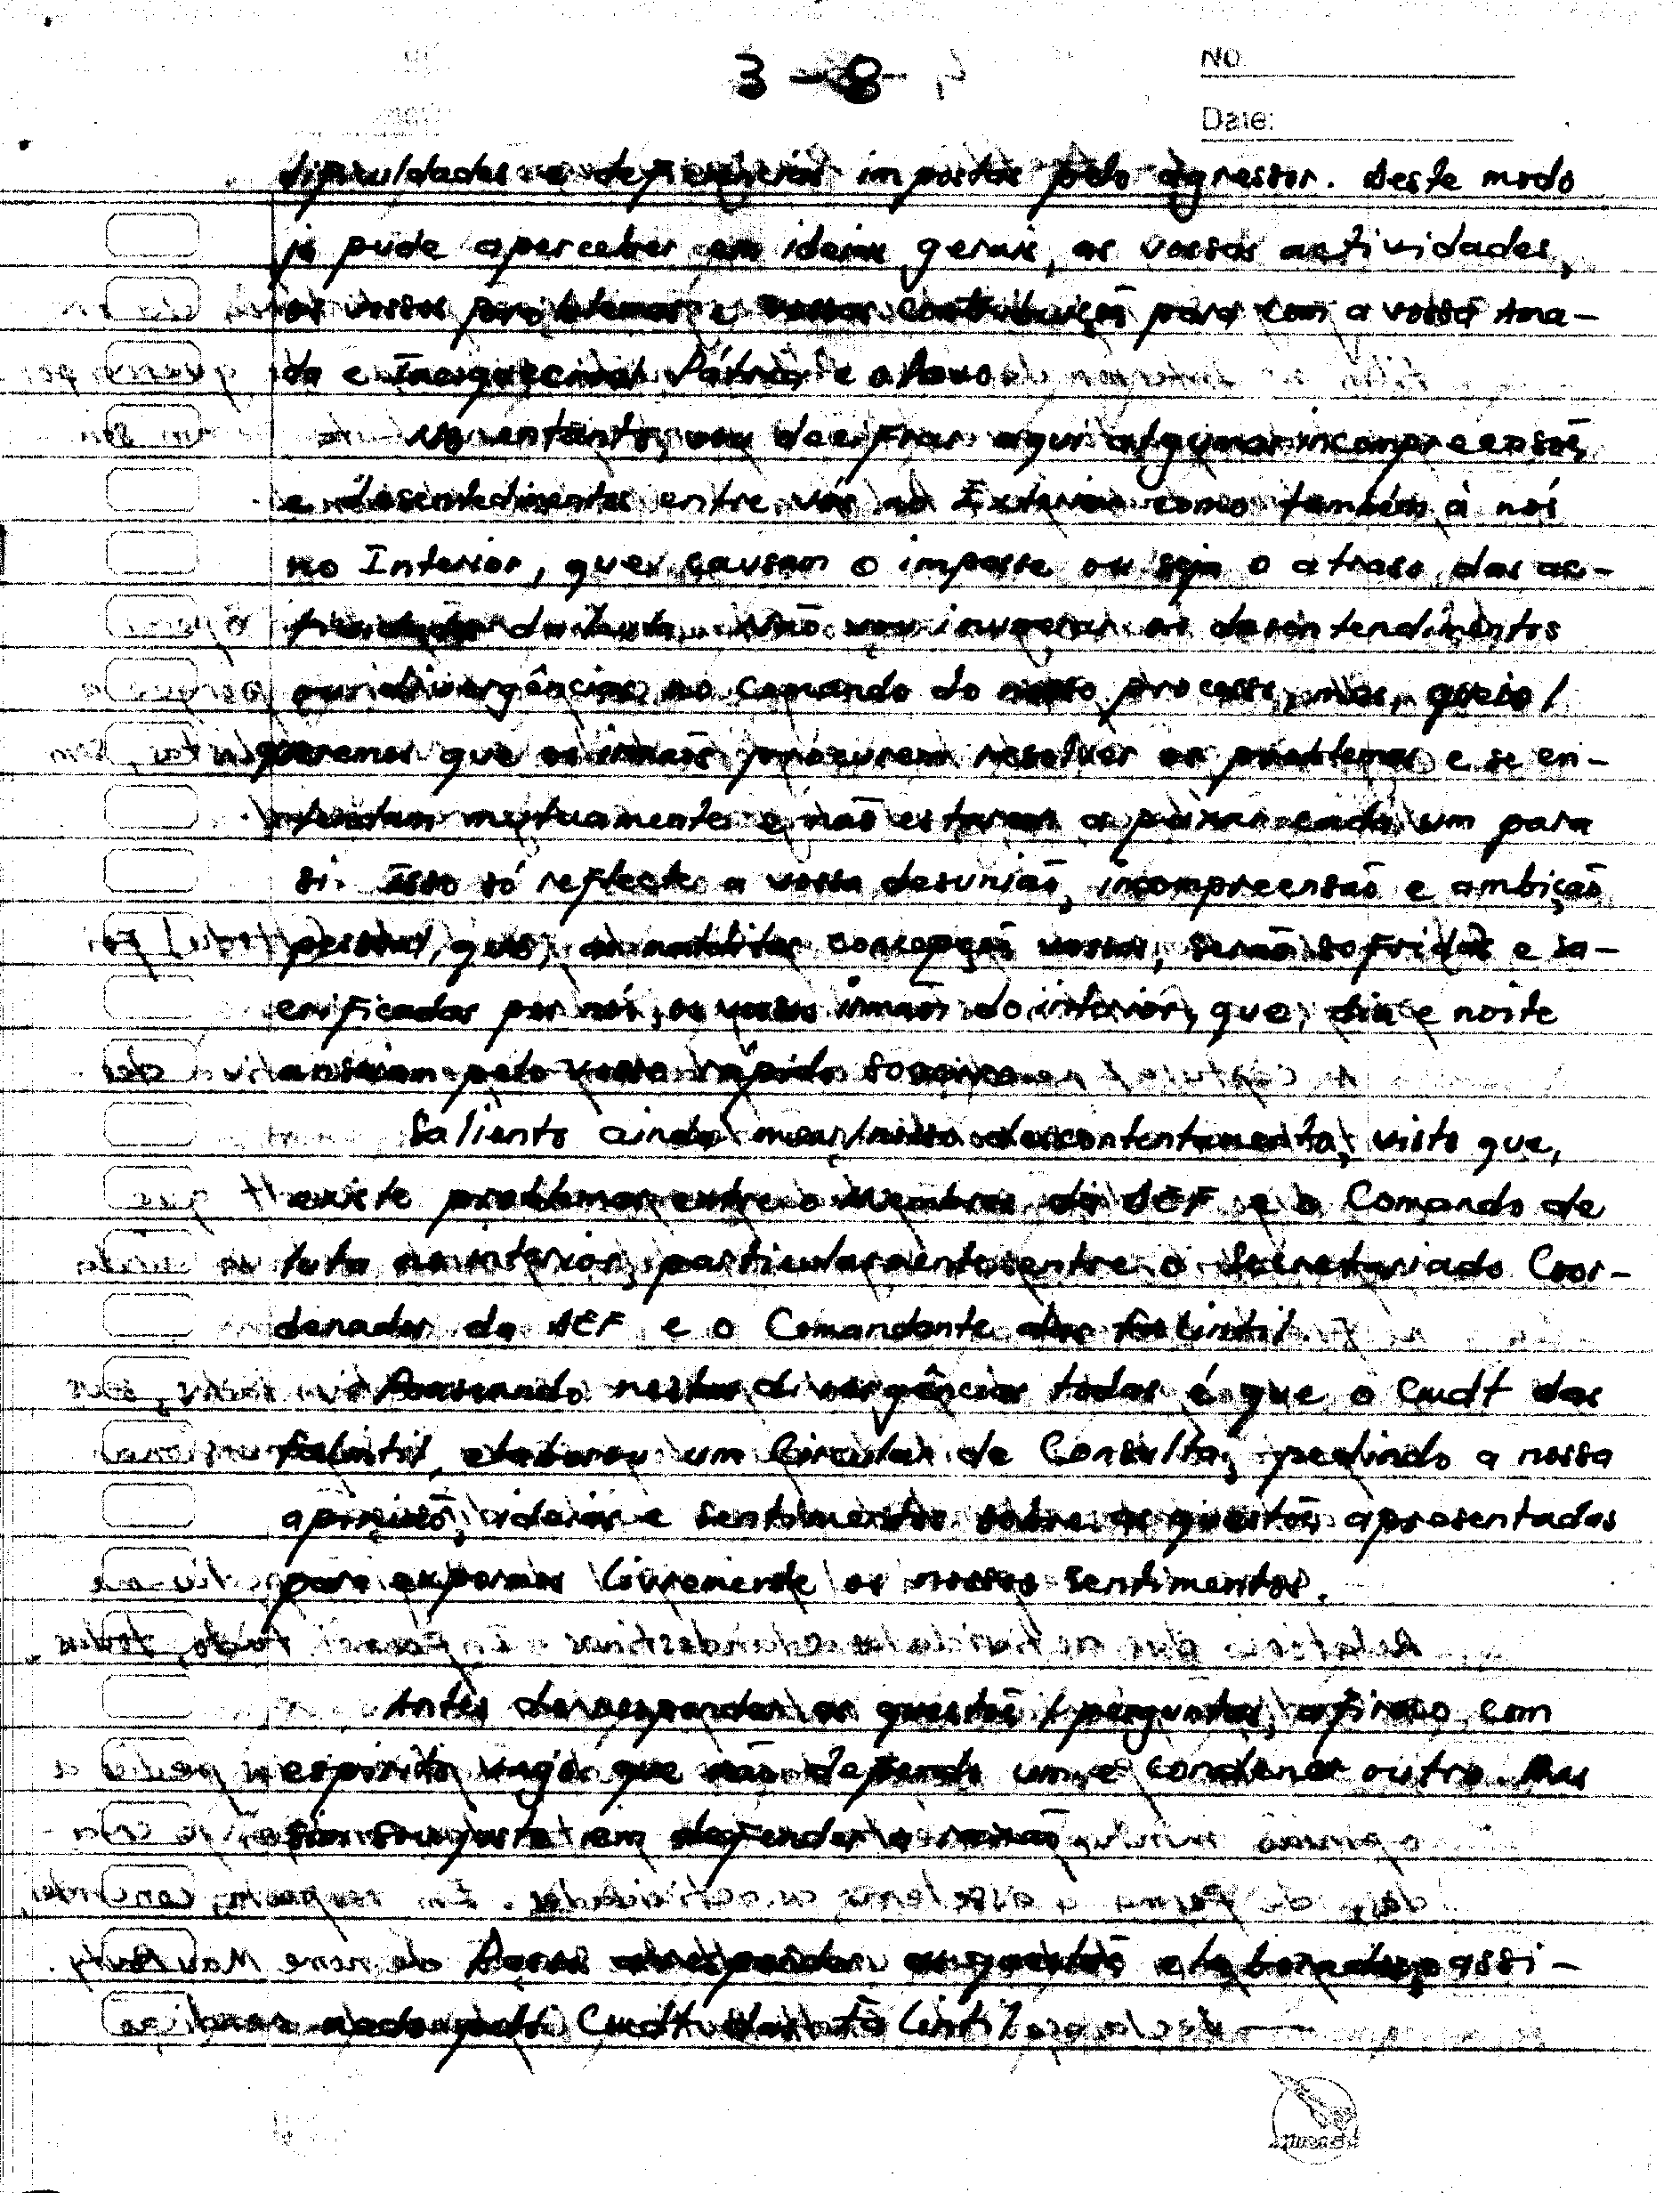 3 - 8
No
Date:
dificuldades e deficiências impostas pelo agressor. Deste modo
já pude aperceber em ideias gerais, as vossas actividades,
os vossos problemas e vossas contribuiçõs para com a vossa Ama-
da e Inesquecível Pátria e o Povo.
No entanto, vou decifrar aqui algumas incompreensõs
e desentedimentos entre vós no Exterior como também à nós
no Interior, que causam o impasse ou seja o atraso das ac-
tividades da luta. Não vou inumerar os desentendimentos
ou divergências no Comando do nosso processo, mas, queio/
queremos que os irmaõs procurem resolver os problemas e se en-
tendam mutuamente e naõ estarem a puxar cada um para
si. Isso só reflecte a vossa desuniaõ, incompreensaõ e ambiçaõ
pessoal, que, as concepçoẽs vossas, seraõ sofridas e sa-
crificadas por nós, os vossos irmaõs do interior, que, dia e noite
anseiam pelo vosso rápido socorro.
Saliento ainda meu/nosso descontentamento, visto que,
existe problemas entre o Membros da DEF e o Comando de
luta no interior, particularmente entre o Secretariado Coor-
denador da DEF e o Comandante das Falintil.
Passando nestas divergências todas é que o Cmdt das
Falintil, elaborou um Circular de Consulta, pedindo a nossa
opiniõs, ideias e sentimentos sobre as questõs apresentadas
para expormos livremente os nossos sentimentos.
Antes de responder as questõs / perguntas, afirmo com
espírito que naõ defendo um e condenar outro. Mas
sim sou justo em defender a razaõ.
Passo a responder as questõs elaboradas, assi-
nado pelo Cmdt das Falintil